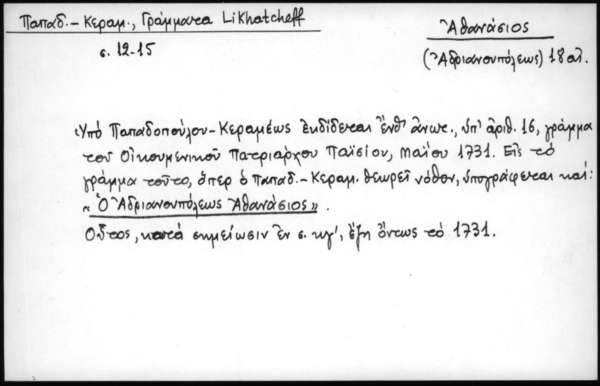 Παπαδ.-Κεραμ., Γράμματα Likhatcheff
σ. 12-15
Ἀθανάσιος
(Ἀδριανουπόλεως) 18 αἰ.
Ὑπὸ Παπαδοπούλου-Κεραμέως ἐκδίδεται ἔνθ' ἀνωτ., ὑπ' ἀριθ. 16, γράμμα
τοῦ Οἰκουμενικοῦ Πατριάρχου Παϊσίου, Μαΐου 1731. Εἰς τὸ
γράμμα τοῦτο, ὅπερ ὁ Παπαδ.-Κεραμ. θεωρεῖ νόθον, ὑπογράφεται καί:
«Ὁ Ἀδριανουπόλεως Ἀθανάσιος».
Οὗτος, κατὰ σημείωσιν ἐν σ. κγ', ἔζη ὄντως τὸ 1731.